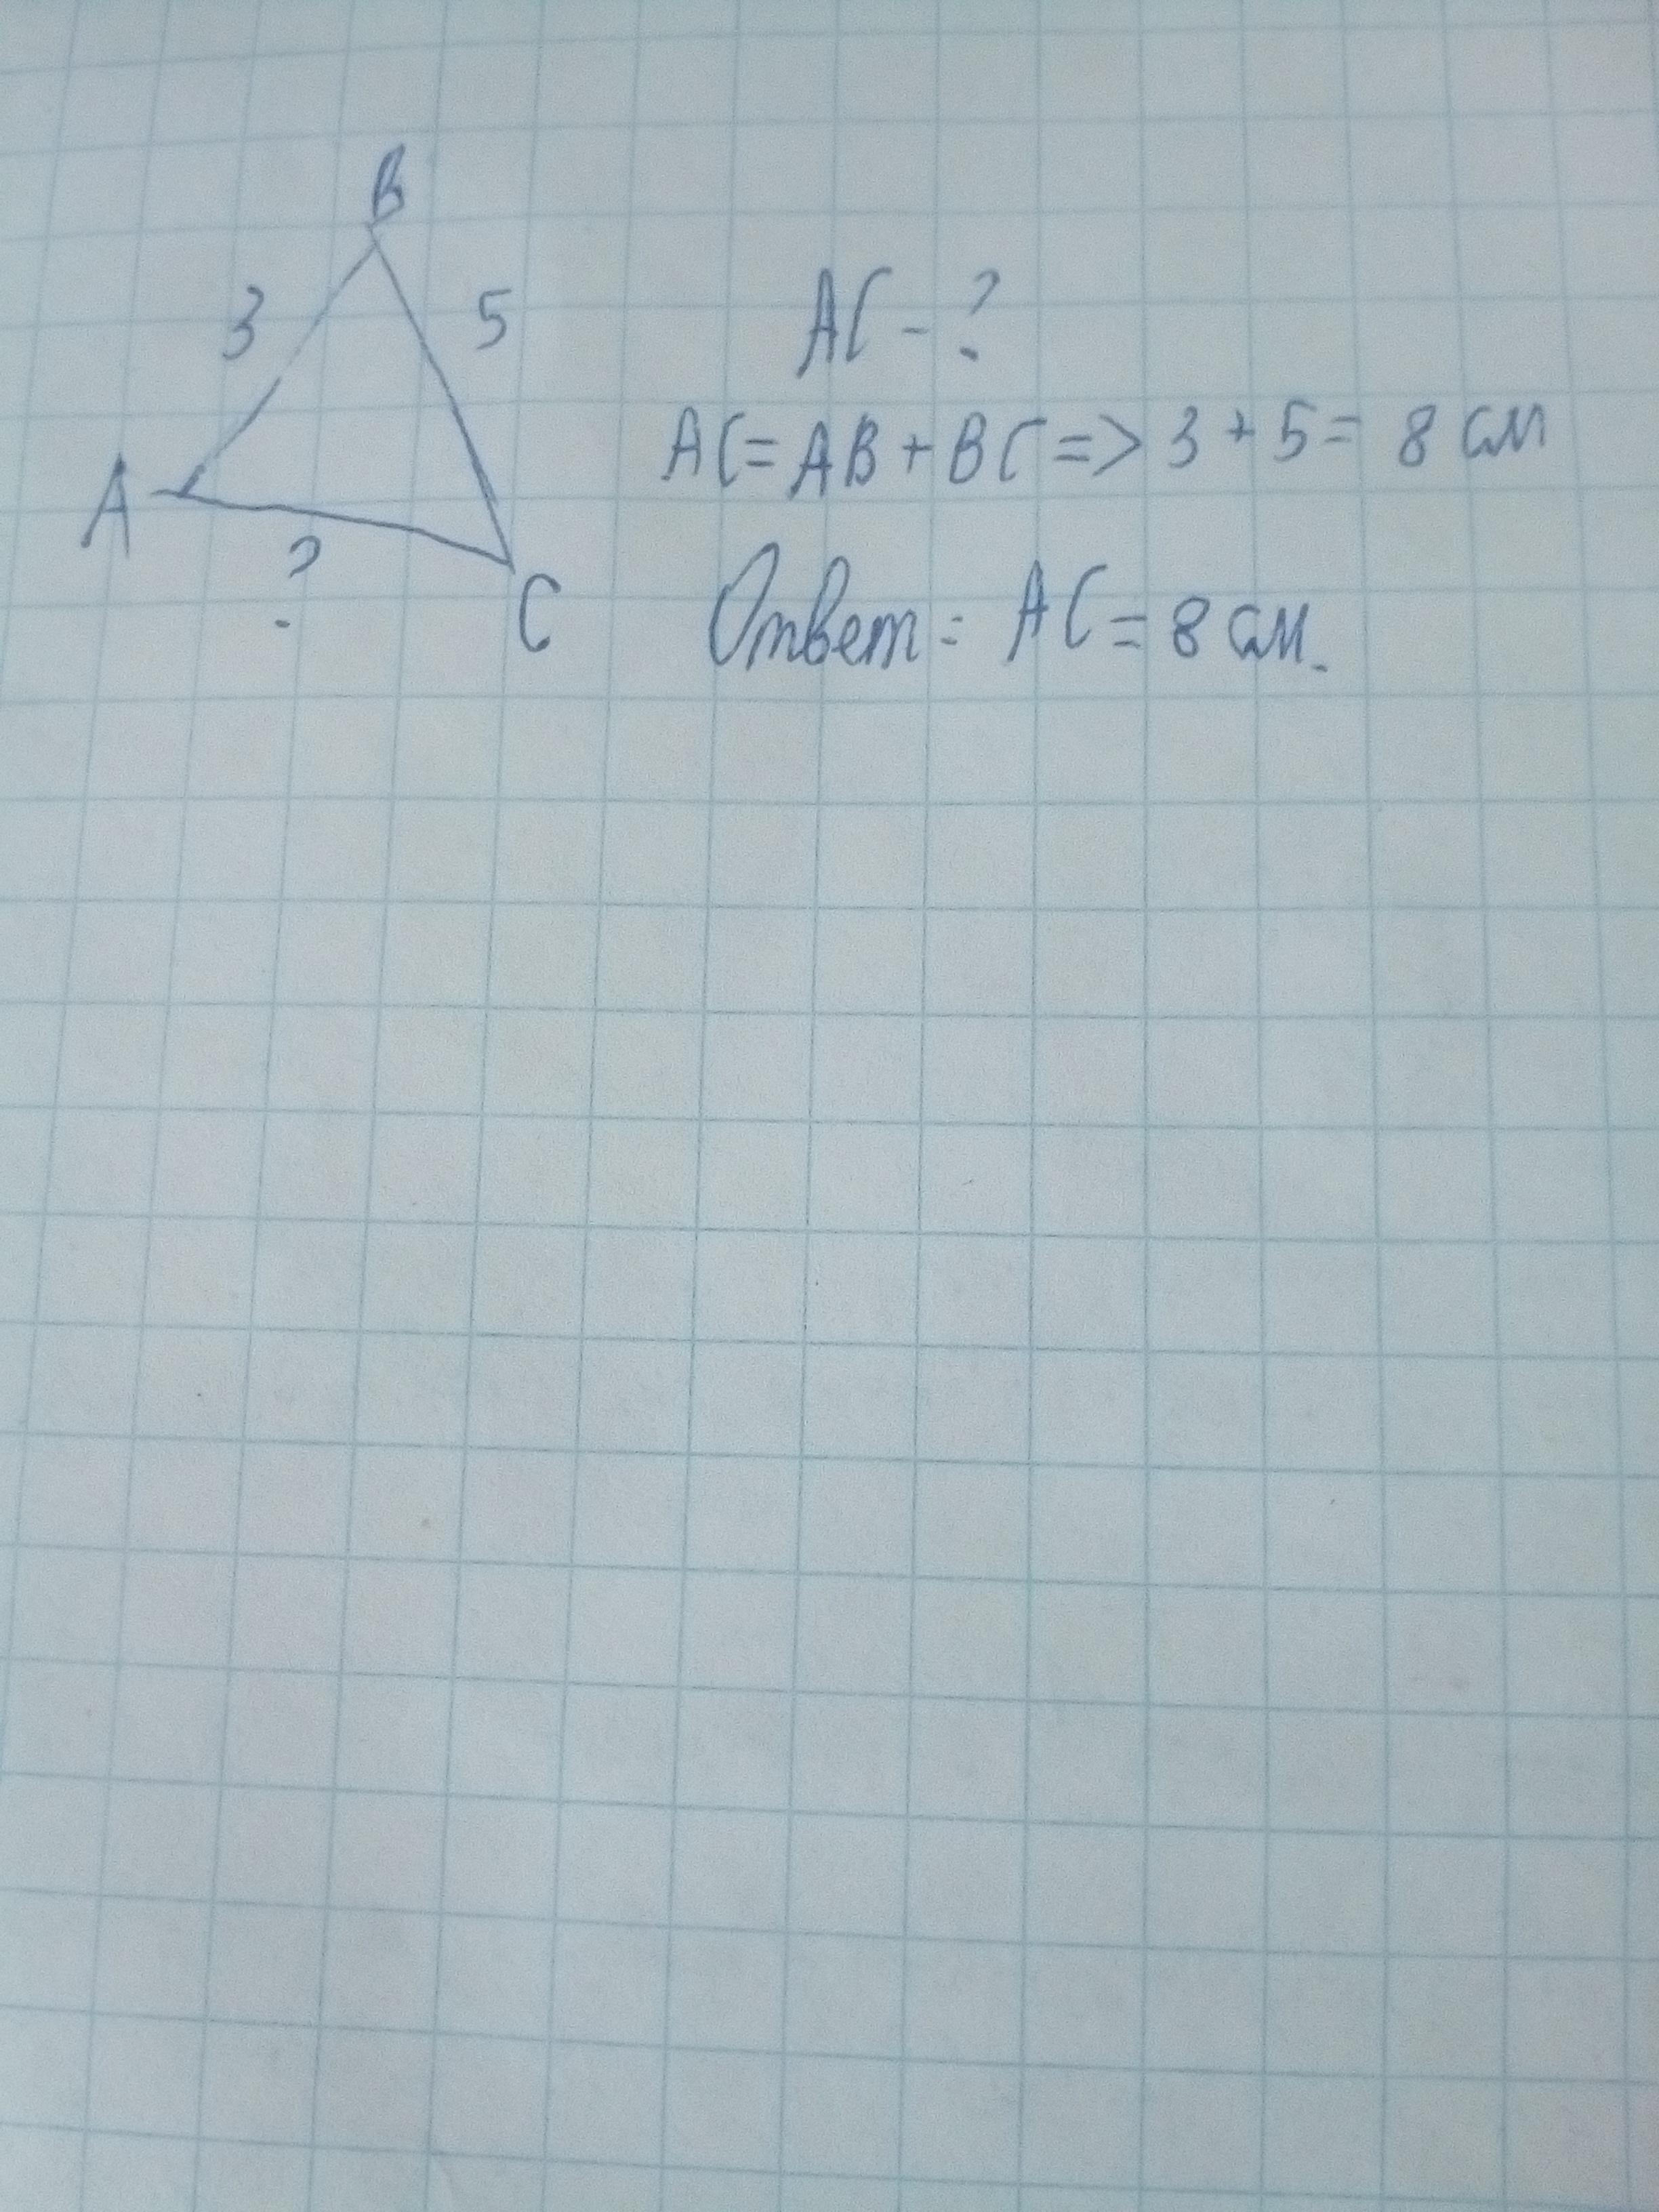 B
3
5
A
?
C
AC - ?
AC = AB + BC => 3 + 5 = 8 см
Ответ: AC = 8 см.